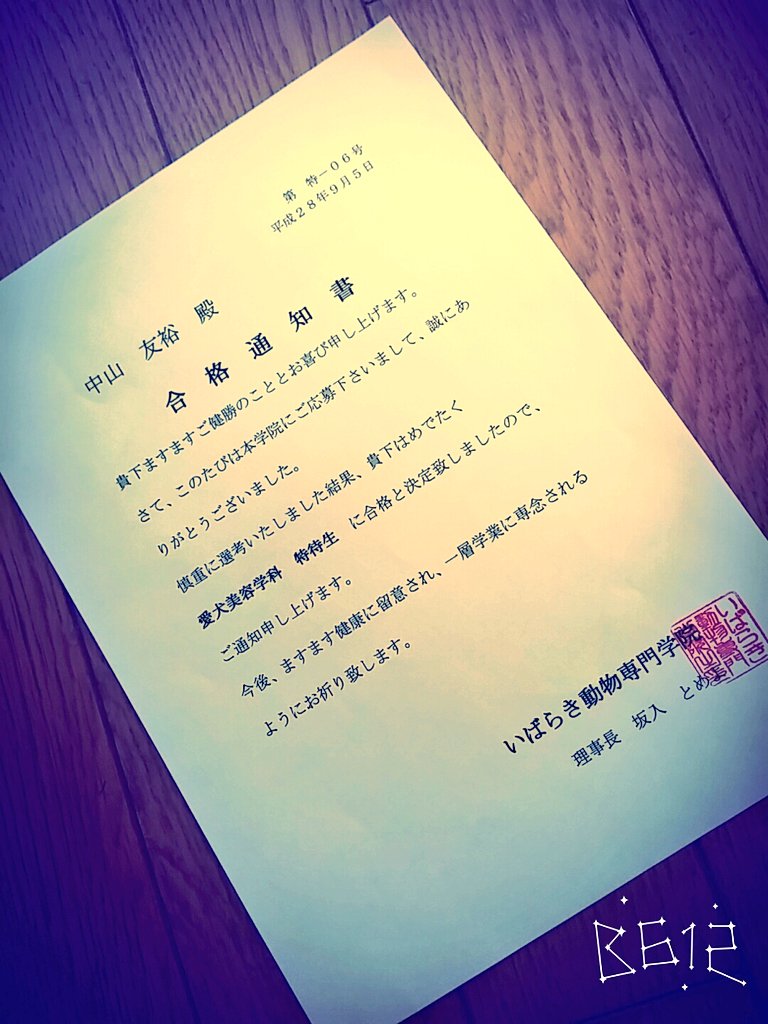 第 特－06号
平成28年9月5日
中山 友裕 殿
合格通知書
貴下ますますご健勝のこととお喜び申し上げます。
さて、このたびは本学院にご応募下さいまして、誠にあ
りがとうございました。
慎重に選考いたしました結果、貴下はめでたく
愛犬美容学科 特待生 に合格と決定致しましたので、
ご通知申し上げます。
今後、ますます健康に留意され、一層学業に専念される
ようにお祈り致します。
いばらき動物専門学院
理事長 坂入 とめ
B612